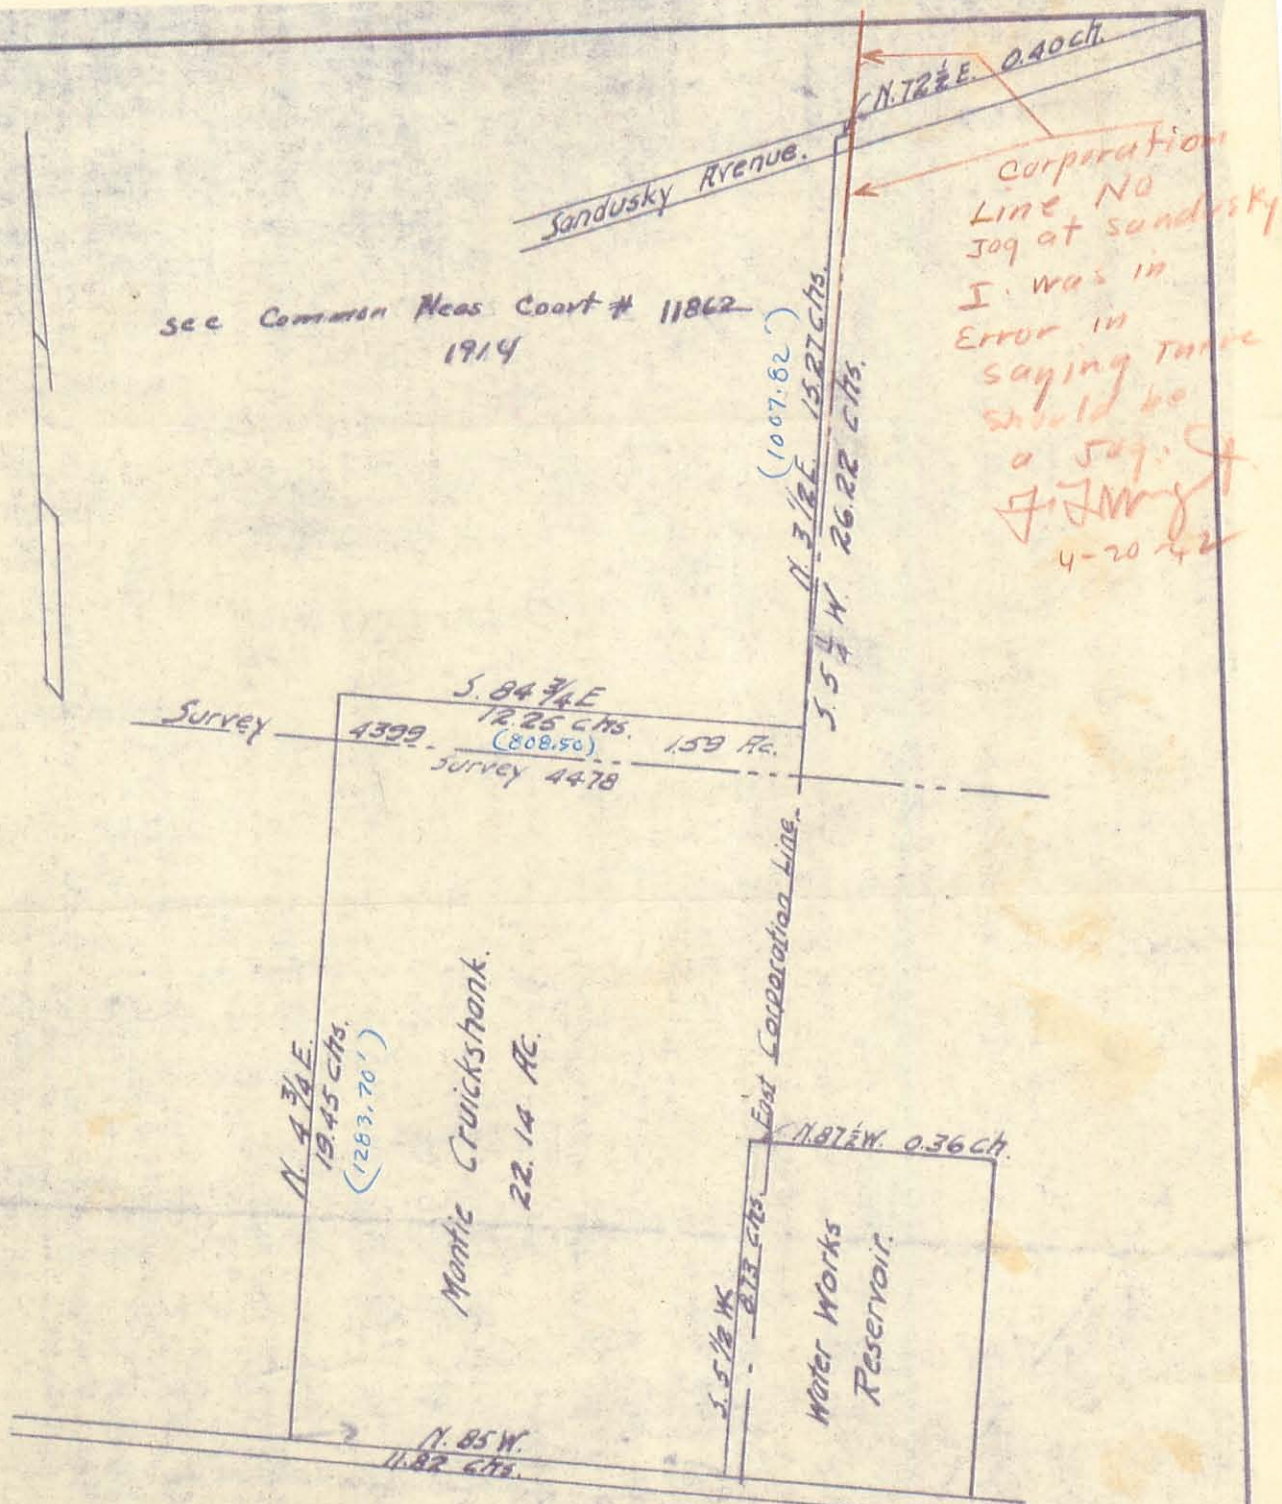 N. 72 1/2 E. 0.40 ch.
Sandusky Avenue.
Corporation
Line No
Jog at Sandusky
I. was in
Error in
saying There
should be
a Jog.
4-20-42
see Common Pleas Court # 11862
1914
N. 3 1/2 E. 15.27 chs.
(1007.82')
S. 5 1/4 W. 26.22 chs.
S. 84 3/4 E
12.25 chs.
(808.50)
1.59 Ac.
Survey 4399
Survey 4478
East Corporation Line.
N. 4 3/4 E.
19.45 chs.
(1283.70')
Montie Cruickshank.
22.14 Ac.
N. 87 1/2 W. 0.36 ch.
S. 5 1/2 W.
8.73 chs.
Water Works
Reservoir.
N. 85 W.
11.82 chs.